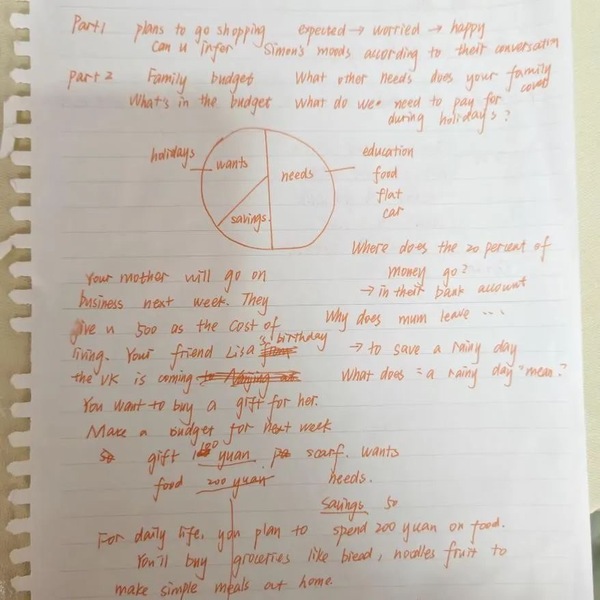 Part1 plans to go shopping expected → worried → happy
can u infer Simon's moods according to their conversation
part 2 Family budget What other needs does your family cover
What's in the budget what do we need to pay for
during holiday's?
holidays wants needs education
food
flat
savings. car
Where does the 20 percent of
money go?
→ in their bank account
Why does mum leave ...
→ to save a rainy day
What does "a rainy day" mean?
Your mother will go on
business next week. They
give u 500 as the cost of
living. Your friend Lisa's birthday
the UK is coming
You want to buy a gift for her.
Make a budget for next week
gift yuan scarf. wants
food 200 yuan needs.
Savings 50
For daily life, you plan to spend 200 yuan on food.
You'll buy groceries like bread, noodles fruit to
make simple meals at home.